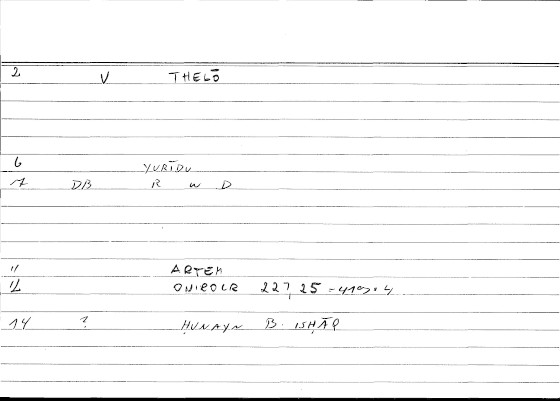 2 V THELŌ
6 YURĪDU
7 DB R W D
11 ARTEM
12 ONIROCR 227, 25 = 419, 4
14 ? ḤUNAYN B. ISḤĀQ